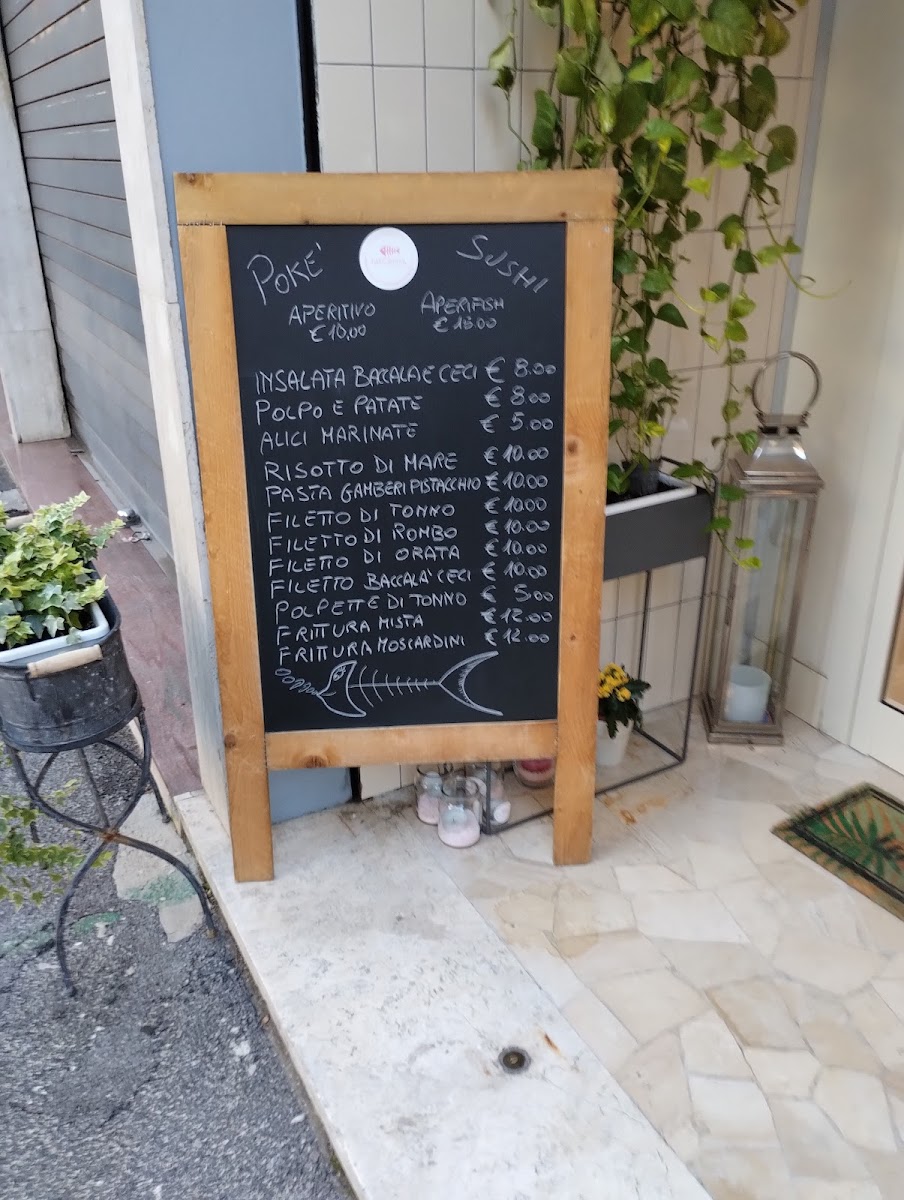 POKÉ SUSHI
APERITIVO APERIFISH
€ 10,00 € 15.00
INSALATA BACCALA E CECI € 8.00
POLPO E PATATE € 8.00
ALICI MARINATE € 5.00
RISOTTO DI MARE € 10.00
PASTA GAMBERI PISTACCHIO € 10.00
FILETTO DI TONNO € 10.00
FILETTO DI ROMBO € 10.00
FILETTO DI ORATA € 10.00
FILETTO BACCALA' CECI € 10.00
POLPETTE DI TONNO € 5.00
FRITTURA MISTA € 12.00
FRITTURA MOSCARDINI € 12.00